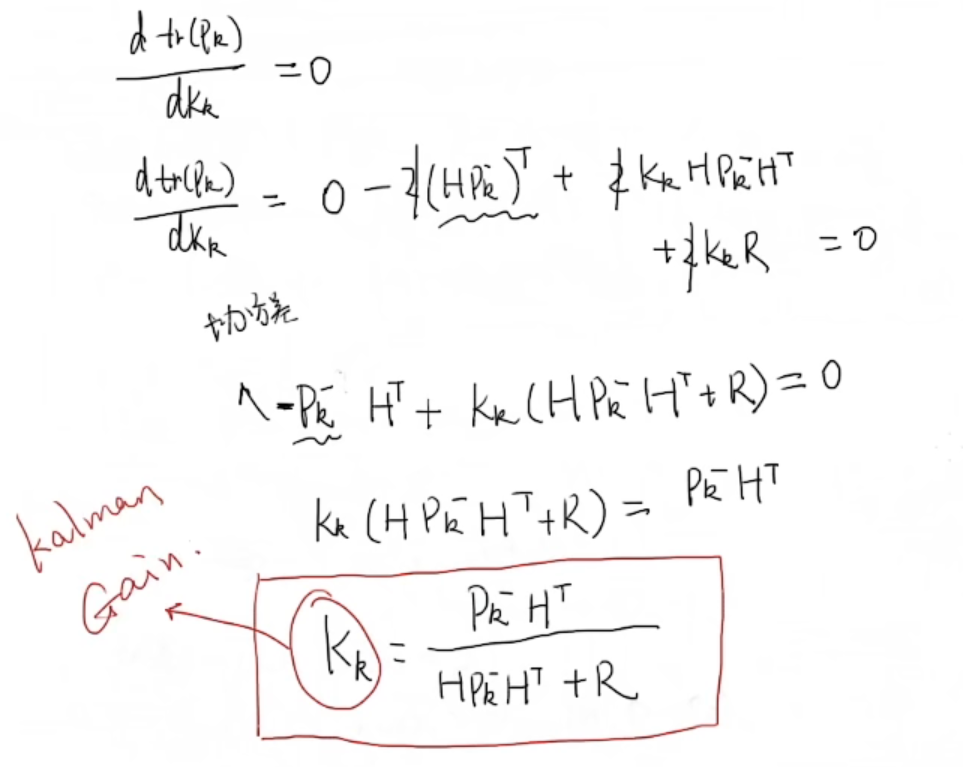 d tr(Pk)/dKk = 0
d tr(Pk)/dKk = 0 - 2(HPk⁻)ᵀ + 2 Kk H Pk⁻ Hᵀ
+ 2 Kk R = 0
协方差
- Pk⁻ Hᵀ + Kk (H Pk⁻ Hᵀ + R) = 0
Kk (H Pk⁻ Hᵀ + R) = Pk⁻ Hᵀ
kalman
Gain.
Kk = Pk⁻ Hᵀ / HPk⁻Hᵀ + R